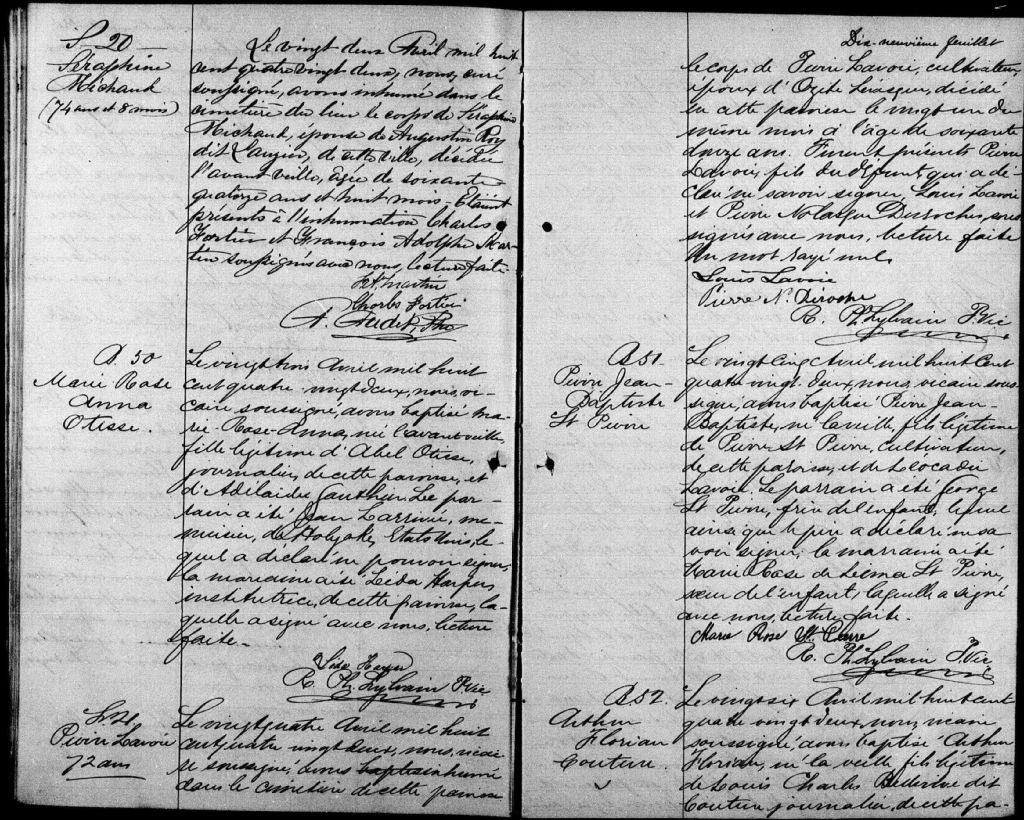 S 20
Séraphine
Michaud
(74 ans et 8 mois)
Le vingt deux Avril mil huit
cent quatre vingt deux, nous, curé
soussigné, avons inhumé dans le
cimetière du lieu le corps de Séraphine
Michaud, épouse de Augustin Roy
dit Lauzier, de cette ville, décédée
l'avant veille, agée de soixante
quatorze ans et huit mois. Étaient
présents à l'inhumation Charles
Fortier et François Adolphe Mar-
tin soussignés avec nous, lecture faite.
F A Martin
Charles Fortier
Ptre
B. 50
Marie Rose
Anna
Otisse.
Le vingt trois Avril mil huit
cent quatre vingt deux, nous, vi-
caire soussigné, avons baptisé Ma-
rie-Rose-Anna, née l'avant veille,
fille légitime d'Abel Otisse,
journalier, de cette paroisse, et
d'Adélaide Gauthier. Le par-
rain a été Jean Larrivée, me-
nuisier, de Holyoke, Etats Unis, le-
quel a déclaré ne pouvoir signer,
la marraine a été Léda Harper,
institutrice, de cette paroisse, la-
quelle a signé avec nous, lecture
faite.-
Léda Harper
R. Ph. Sylvain P. Vic
S. 21
Pierre Lavoie
72 ans
Le vingt quatre Avril mil huit
cent quatre vingt deux, nous, vicai-
re soussigné, avons baptisé inhumé
dans le cimetière de cette paroisse
Dix-neuvième feuillet
le corps de Pierre Lavoie, cultivateur,
époux d'Ozite Lévesque, décédé
en cette paroisse le vingt un du
même mois à l'âge de soixante
douze ans. Furent présents Pierre
Lavoie, fils du défunt, qui a dé-
claré ne savoir signer, Louis Lavoie
et Pierre Nolasque Desroches, sous-
signés avec nous, lecture faite.
Un mot rayé nul.
Louis Lavoie
Pierre N. Déroche
R. Ph. Sylvain P. Vic
B 51.
Pierre Jean-
Baptiste
St Pierre
Le vingt cinq Avril mil huit cent
quatre vingt deux, nous, vicaire sous-
signé, avons baptisé Pierre Jean-
Baptiste, né la veille, fils légitime
de Pierre St Pierre, cultivateur,
de cette paroisse, et de Léocadie
Lavoie. Le parrain a été George
St Pierre, frère de l'enfant, lequel
ainsi que le père a déclaré ne sa-
voir signer, la marraine a été
Marie Rose de Lima St Pierre,
sœur de l'enfant, laquelle a signé
avec nous, lecture faite.
Marie Rose St Pierre
R. Ph. Sylvain P. Vic
B 52.
Arthur
Florian
Couture.
Le vingt six Avril mil huit cent
quatre vingt deux, nous, vicaire
soussigné, avons baptisé Arthur
Florian, né la veille, fils légitime
de Louis Charles dit
Couture, journalier, de cette pa-